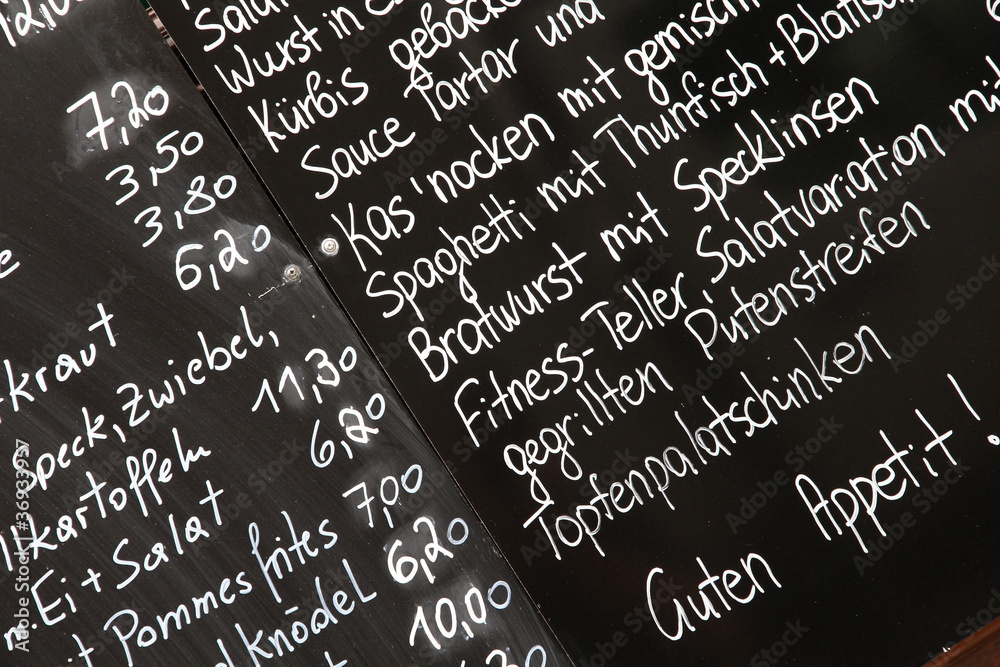 7,20
3,50
3,80
6,20
kraut
Speck, Zwiebel,
kartoffeln
11,30
Ei + Salat
6,20
7,00
Pommes frites
6,20
knödel
10,00
Wurst in
Kürbis gebacke
Sauce Tartar und
Kas'nocken mit gemisch
Spaghetti mit Thunfisch + Blattsa
Bratwurst mit Specklinsen
Fitness-Teller, Salatvariation mit
gegrillten Putenstreifen
Topfenpalatschinken
Guten Appetit!
Adobe Stock | #36933957